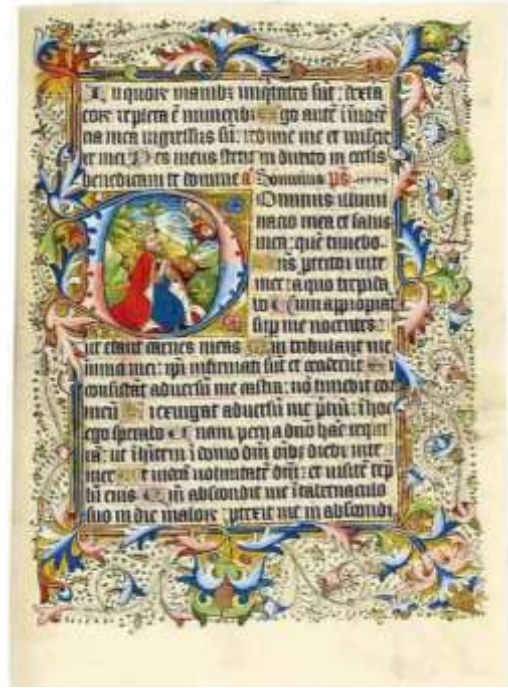 In quoꝝ manibꝫ iniqtates sūt: dexta
eoꝝ repleta ē muneribꝰ Ego autē ī īnocē
cia mea ingressus sū: redime me et misere
re mei Pes meus stetit in directo in ecclis
benedicam te domine Dominus ps
Dominus illumi
nacio mea et salus
mea: quē timebo
ns̄ protector vite
mee: a quo trepida
bo Dum appropiāt
sup me nocentes:
ut edant carnes meas Qui tribulant me
inimici mei: ipi infirmati sūt et ceciderūt Si
consistāt adversū me castra: nō timebit cor
meū Si exurgat adversū me pliū: ī hoc
ego sperabo Unam petij a dn̄o hāc requi
rā: ut īhītem ī domo dn̄i oībꝫ diebꝫ vite
mee Ut videā voluntatē dn̄i: et visitē tēp
lū eius Qm̄ abscondit me ī tabernaculo
suo in die maloꝝ: ꝓtexit me in abscondi